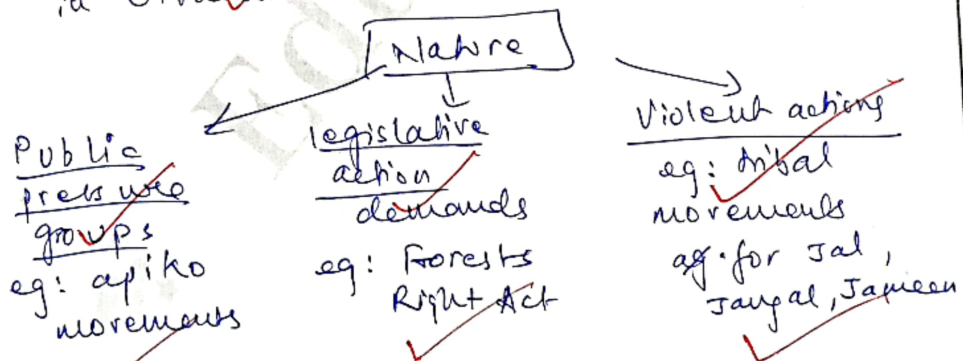 Nature
Public
pressure
groups
eg: apiko
movements
legislative
action
demands
eg: Forests
Right Act
Violent actions
eg: tribal
movements
ag. for Jal,
Jangal, Jameen